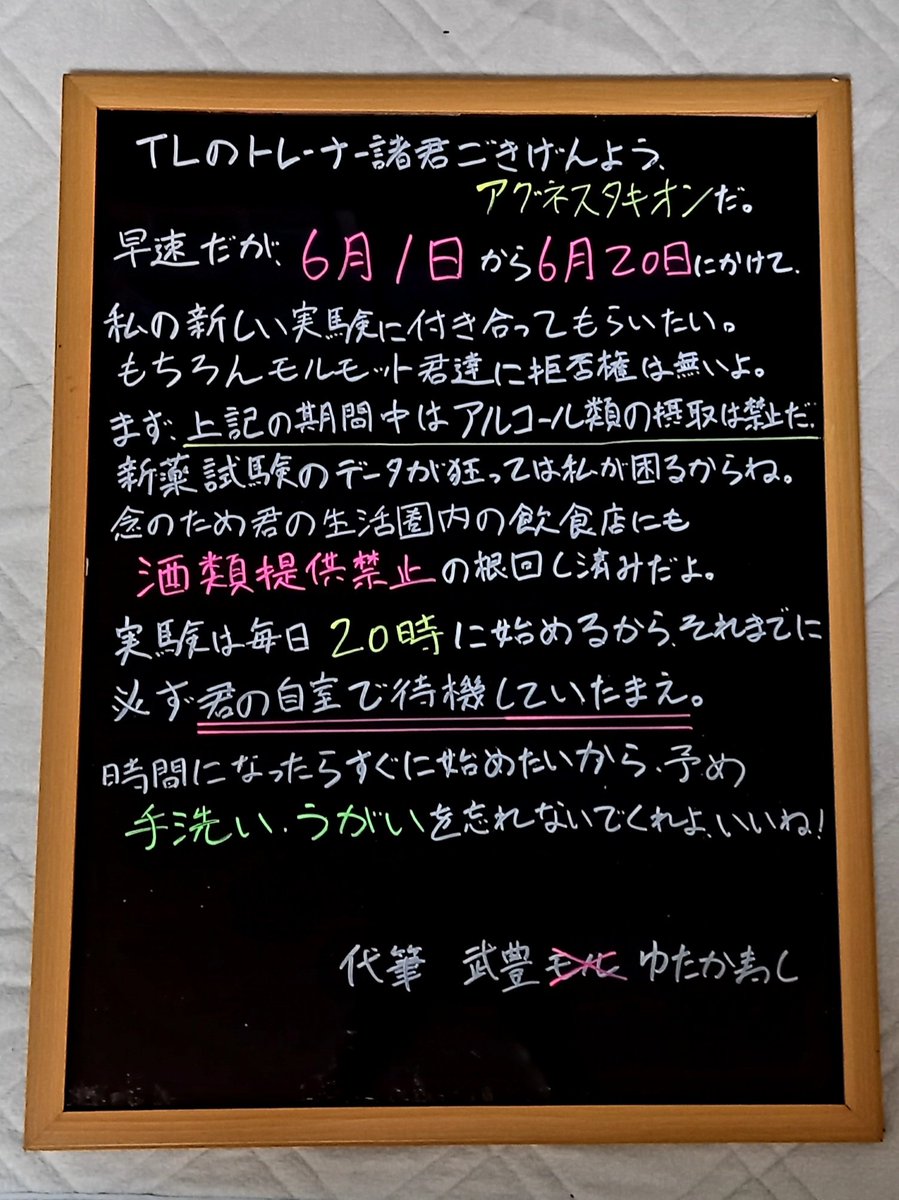 TLのトレーナー諸君ごきげんよう、
アグネスタキオンだ。
早速だが、6月1日から6月20日にかけて、
私の新しい実験に付き合ってもらいたい。
もちろんモルモット君達に拒否権は無いよ。
まず、上記の期間中はアルコール類の摂取は禁止だ。
新薬試験のデータが狂っては私が困るからね。
念のため君の生活圏内の飲食店にも
酒類提供禁止の根回し済みだよ。
実験は毎日20時に始めるから、それまでに
必ず君の自室で待機していたまえ。
時間になったらすぐに始めたいから、予め
手洗い、うがいを忘れないでくれよ、いいね!
代筆 武豊 ゆたか寿し